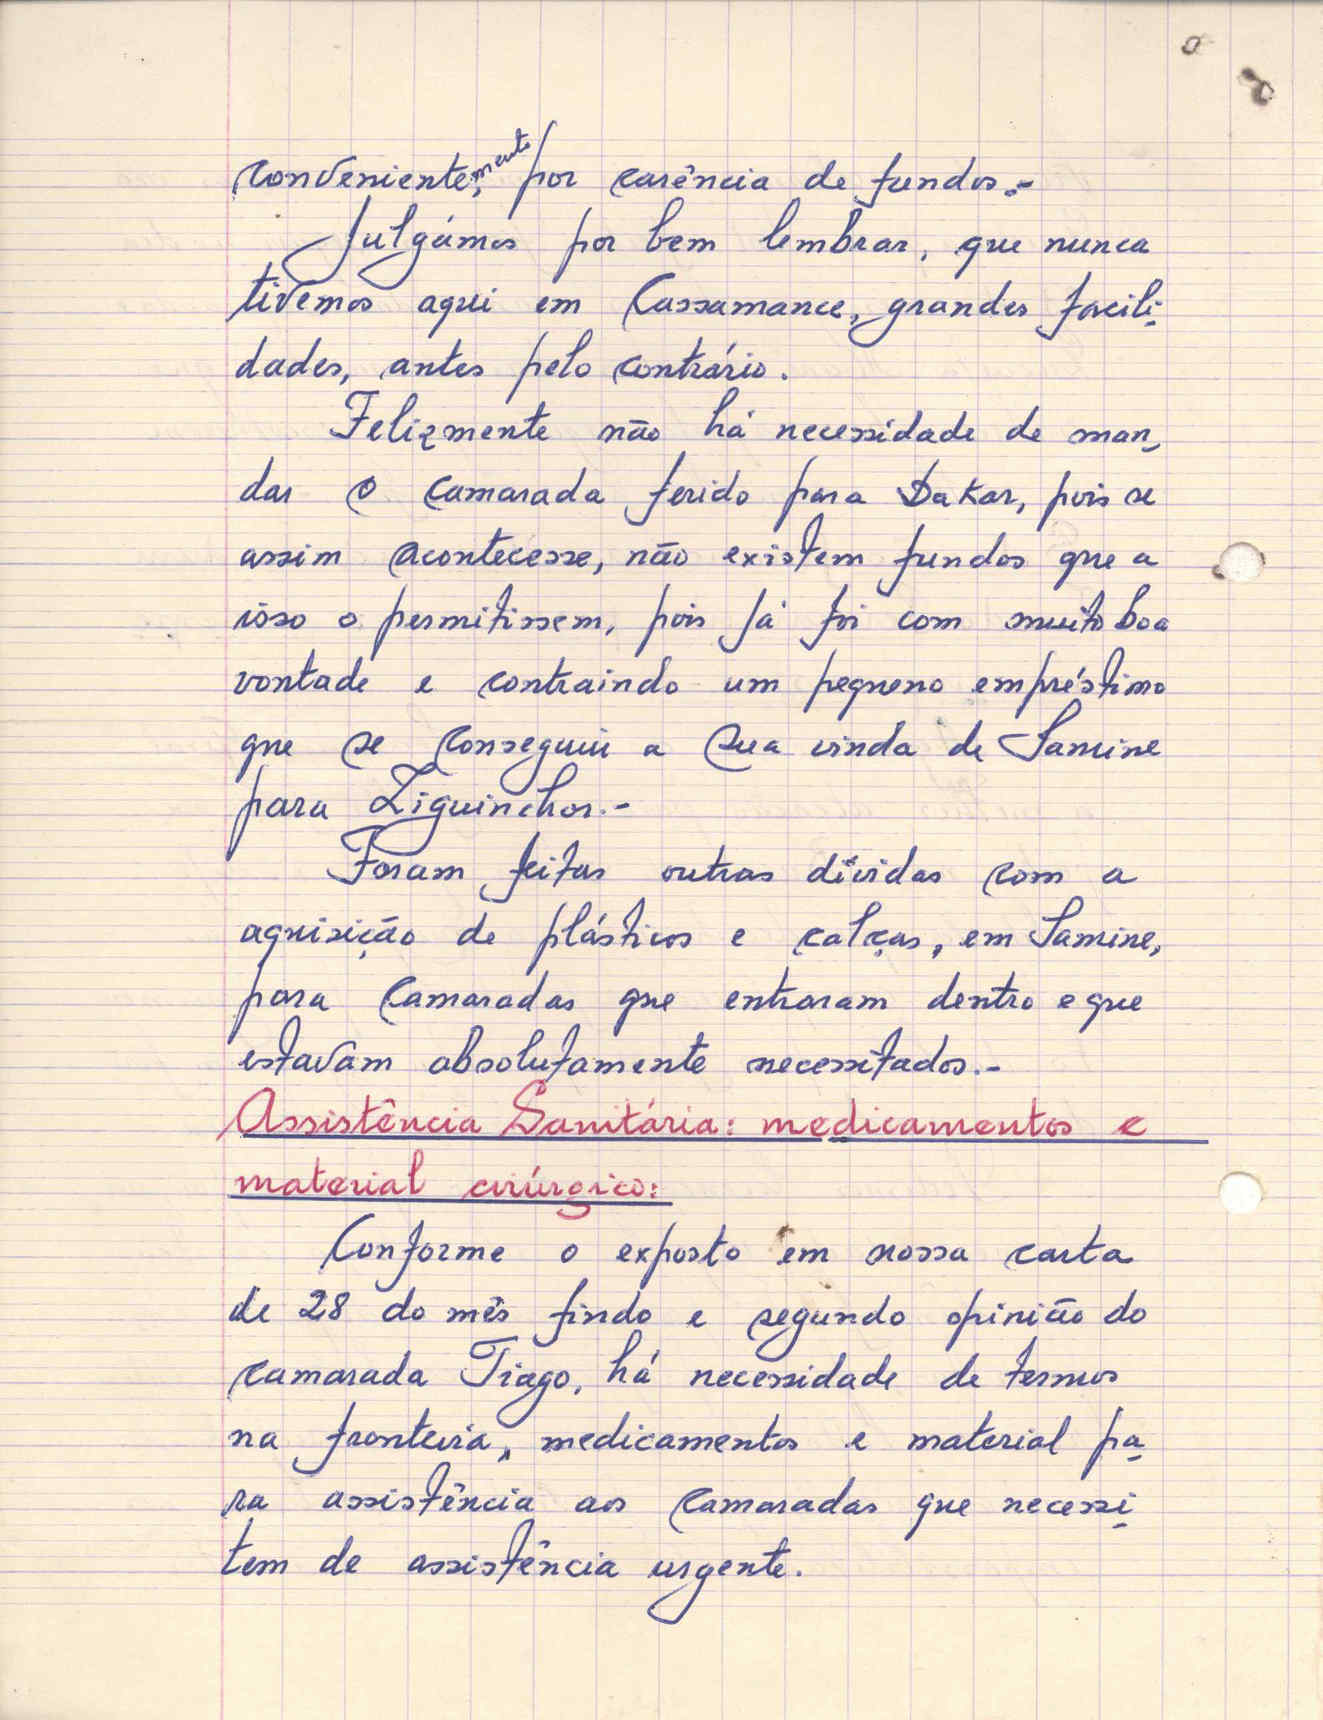 convenientemente, por carência de fundos.-
Julgámos por bem lembrar, que nunca
tivemos aqui em Cassamance, grandes facili-
dades, antes pelo contrário.
Felizmente não há necessidade de man-
dar o camarada ferido para Dakar, pois se
assim acontecesse, não existem fundos que a
isso o permitissem, pois já foi com muito boa
vontade e contraindo um pequeno empréstimo
que se conseguiu a sua vinda de Samine
para Ziguinchor.-
Foram feitas outras dívidas com a
aquisição de plásticos e calças, em Samine,
para camaradas que entraram dentro e que
estavam absolutamente necessitados.-
Assistência Sanitária: medicamentos e
material cirúrgico:
Conforme o exposto em nossa carta
de 28 do mês findo e segundo opinião do
camarada Tiago, há necessidade de termos
na fronteira, medicamentos e material pa-
ra assistência aos camaradas que necessi-
tem de assistência urgente.